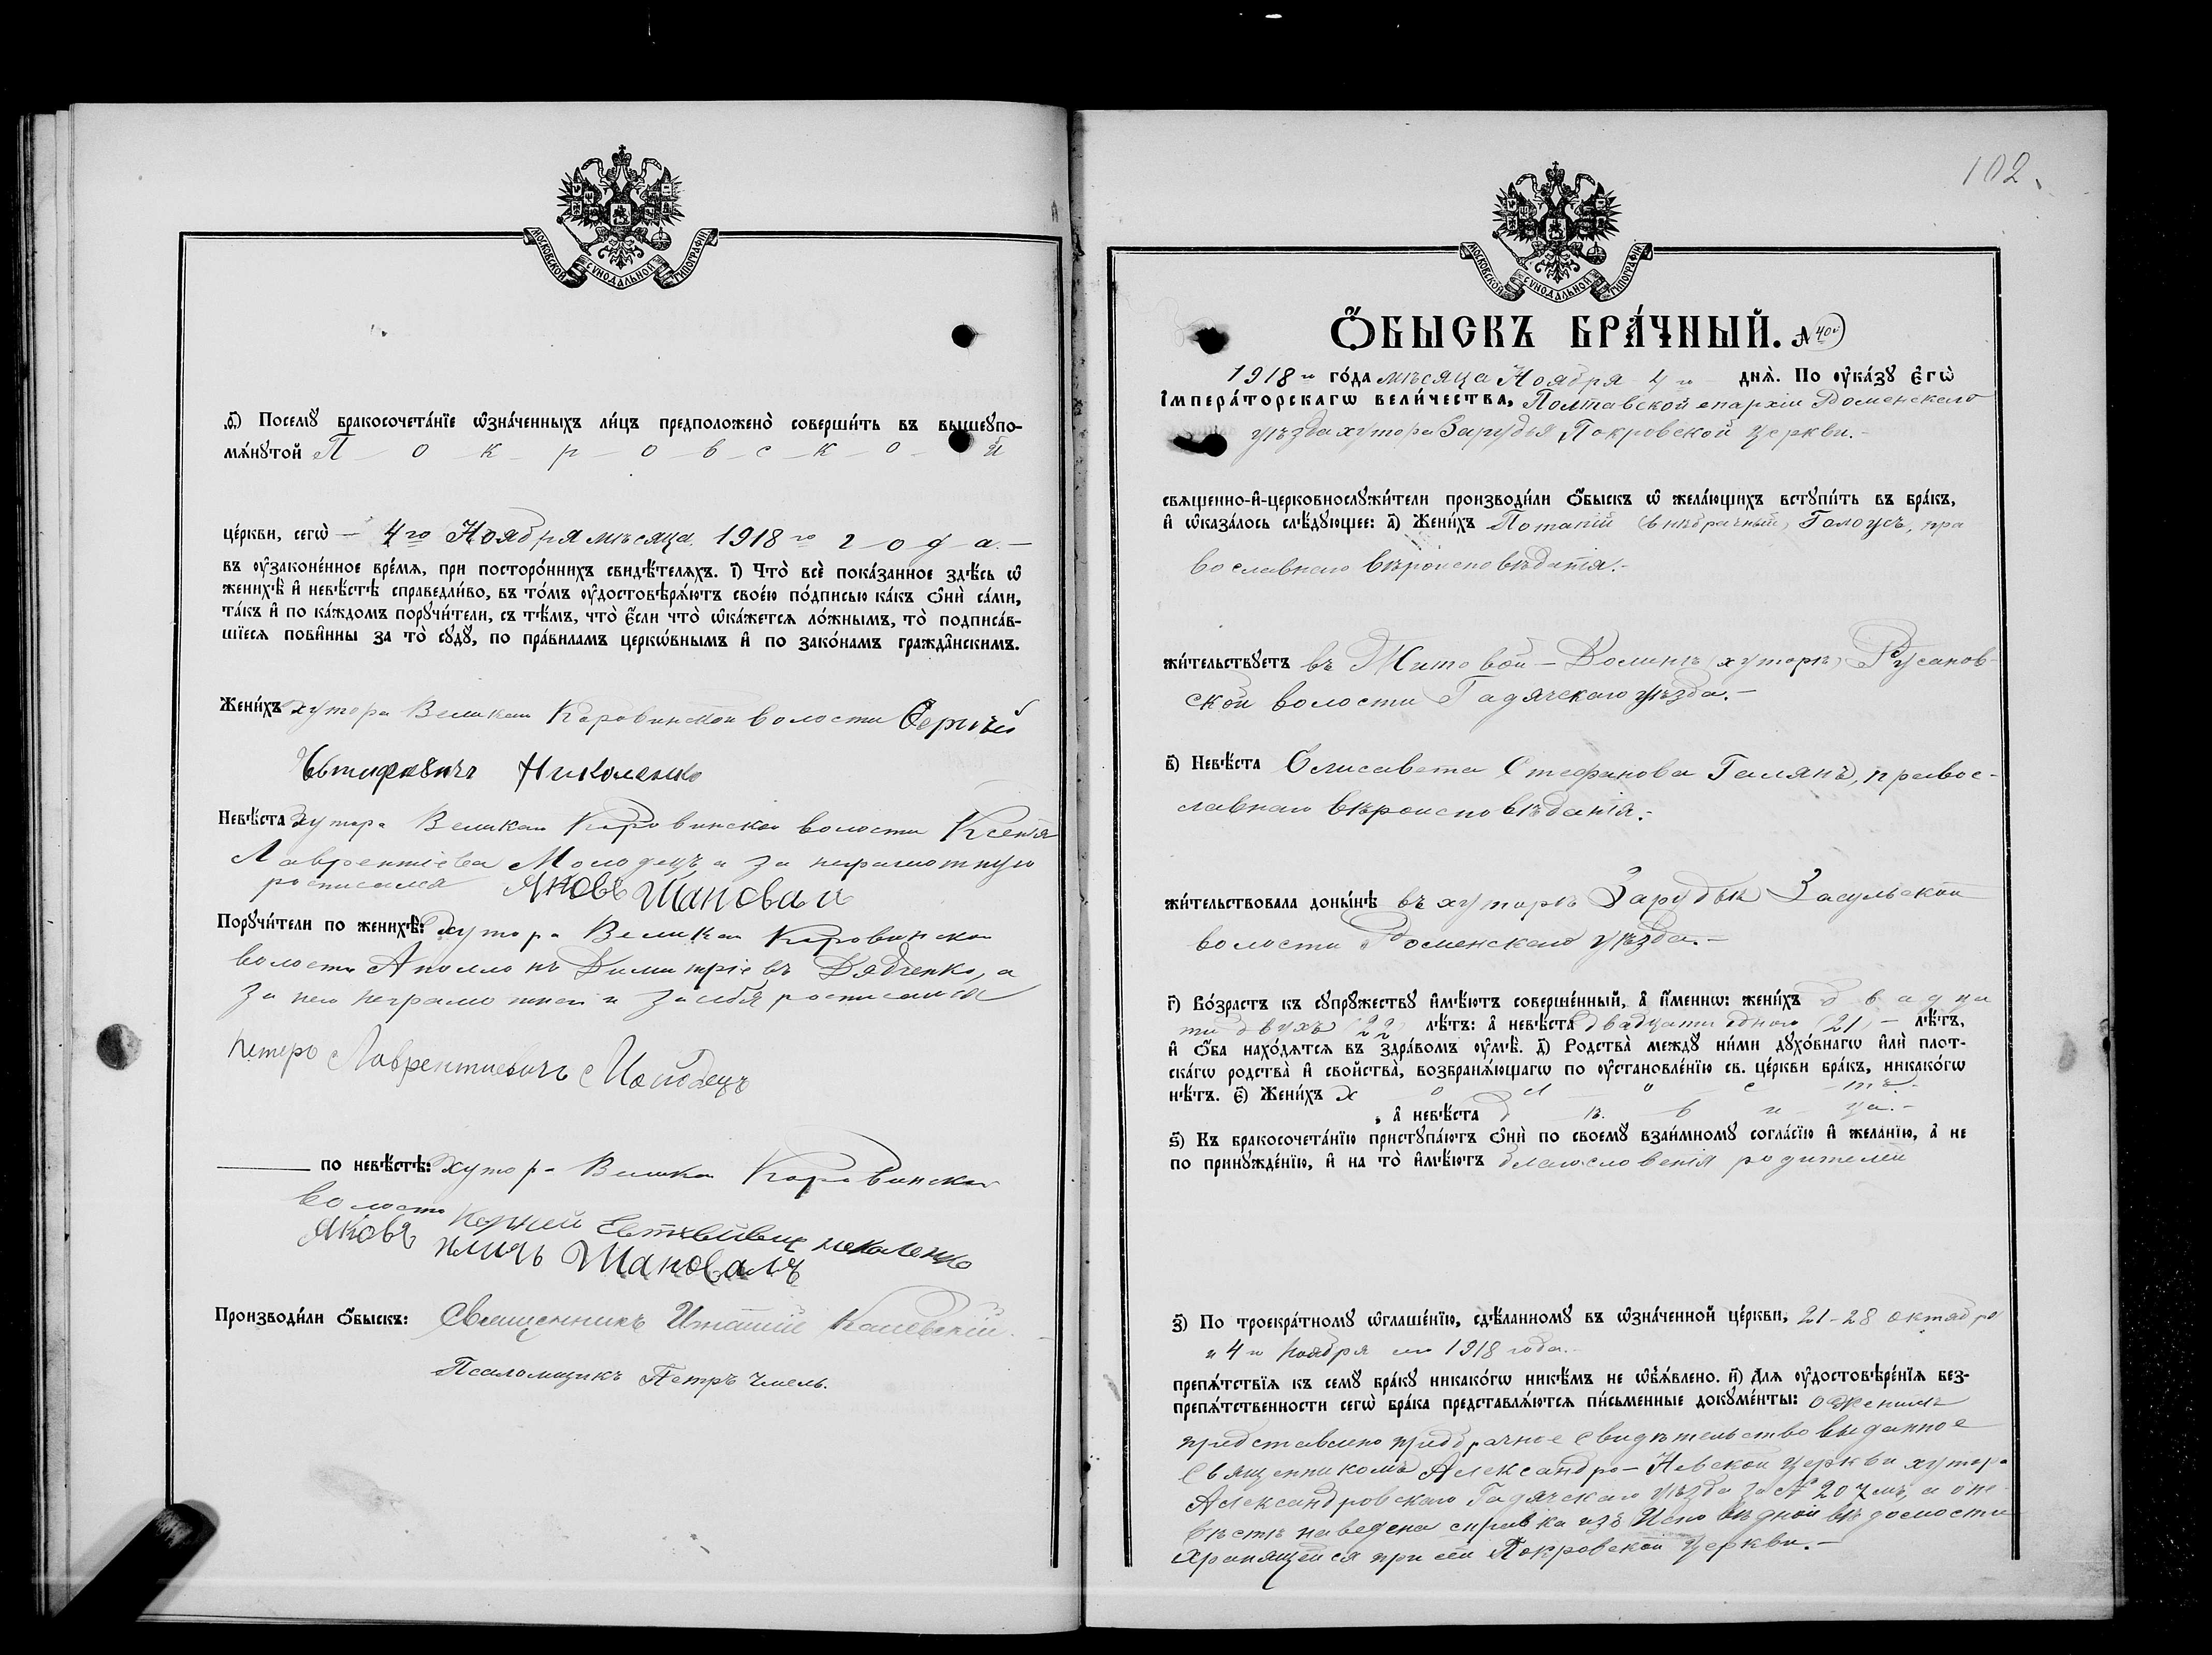 МОСКОВСКОЙ СѴНОДАЛЬНОЙ ТИПОГРАФІИ
ѳ҃) Посемꙋ бракосочета́нїе ѡ҆зна́ченныхъ ли́цъ предположено̀ соверши́ть въ вышеꙋпо-
мѧ́нꙋтой П о к р о в с к о й
це́ркви, сегѡ̀ — 4го Ноября мѣсяца 1918го г о д а. —
въ ᲂу҆законе́нное вре́мѧ, при посторо́ннихъ свидѣ́телѧхъ. і҃) Что̀ всѐ пока́занное здѣ́сь ѡ҆
женихѣ̀ и҆ невѣ́стѣ справедли́во, въ то́мъ ᲂу҆достовѣрѧ́ютъ свое́ю по́дписью ка́къ ѻ҆нѝ са́ми,
та́къ и҆ по ка́ждомъ порꙋчи́тели, съ тѣ́мъ, что̀ є҆́сли что̀ ѡ҆ка́жетсѧ ло́жнымъ, то̀ подписа́в-
шїесѧ пови́нны за то̀ сꙋдꙋ̀, по пра́виламъ церкѡ́внымъ и҆ по зако́намъ гражда̑нскимъ.
Жени́хъ хутора Великаи Коровинской волости Сергѣй
Николенко
Невѣ́ста Хутора Великаи Коровинскои волости Ксенія
Лаврентіева Молодецъ а за неграмотную
росписался Яковъ Шаповал
Порꙋчи́тели по женихѣ̀: Хутора Великаи Коровинскои
волости Аполлонъ Димитріевъ Дядченко, а
за него неграмотнаго и за себя росписался
Петеро Лаврентиевичъ Молодецъ
по невѣ́стѣ: Хутора Великаи Коровинскои
волости Корней николенко
Яковъ Шаповалъ
Производи́ли ѻ҆́быскъ: Священникъ
Псаломщикъ Петръ Чмель.
102.
МОСКОВСКОЙ СѴНОДАЛЬНОЙ ТИПОГРАФІИ
Ѻ҆́БЫСКЪ БРА́ЧНЫЙ. № 40й
1918го го́да мѣсяца Ноября 4го днѧ̀. По ᲂу҆ка́зꙋ є҆гѡ̀
І҆мпера́торскагѡ вели́чества, Полтавской епархіи Роменскаго
уѣзда хутора Зарудья Покровской церкви.—
свѧщенно-и҆-церковнослꙋжи́тели производи́ли ѻ҆́быскъ ѡ҆ жела́ющихъ встꙋпи́ть въ бра́къ,
и҆ ѡ҆каза́лось слѣ́дꙋющее: а҃) Жени́хъ Потапій (внѣбрачный) Галоусъ, пра
вославнаго вѣроисповѣданія.—
жи́тельствꙋетъ въ Житовой-Долинѣ (хуторѣ) Русанов-
ской волости Гадячскаго уѣзда.—
в҃) Невѣ́ста Елисавета Стефанова Галянъ, правос-
лавнаго вѣроисповѣданія.—
жи́тельствовала доны́нѣ въ хуторѣ Зарудьи Засульской
волости Роменскаго уѣзда.—
г҃) Во́зрастъ къ сꙋпрꙋ́жествꙋ и҆мѣ́ютъ соверше́нный, а҆ и҆́меннѡ: жени́хъ д в а д ца
ти двухъ (22) лѣ́тъ: а҆ невѣ́ста двадцати одного (21) — лѣ́тъ,
и҆ ѻ҆́ба нахо́дѧтсѧ въ здра́вомъ ᲂу҆мѣ̀. д҃) Родства̀ междꙋ ни́ми дꙋхо́внагѡ и҆лѝ плот-
ска́гѡ родства̀ и҆ сво́йства, возбранѧ́ющагѡ по ᲂу҆становле́нїю св. це́ркви бра́къ, никако́гѡ
нѣ́тъ. є҃) Жени́хъ х о л о с тъ —
, а҆ невѣ́ста д ѣ в и ца. —
ѕ҃) Къ бракосочета́нїю пристꙋпа́ютъ ѻ҆нѝ по своемꙋ̀ взаи́мномꙋ согла́сїю и҆ жела́нїю, а҆ не
по принꙋжде́нїю, и҆ на то̀ и҆мѣ́ютъ благословенія родителей
з҃) По троекра́тномꙋ ѡ҆глаше́нїю, сдѣ́ланномꙋ въ ѡ҆зна́ченной це́ркви, 21-28 октября
и 4го ноября 1918 года.—
препѧ́тствїѧ къ семꙋ̀ бра́кꙋ никако́гѡ никѣ́мъ не ѡ҆б̾ѧ́влено. и҃) Длѧ ᲂу҆достовѣре́нїѧ без-
препѧ́тственности сегѡ̀ бра́ка представлѧ́ютсѧ пи́сьменные докꙋме́нты: о женихѣ
представлено предбрачное свидѣтельство выданное
Священникомъ Александро-Невской церкви хутора
Александровскаго Гадячскаго уѣзда за № 207мъ, а о не-
вѣстѣ наведена справка изъ Исповѣдной вѣдомости
хранящейся при сей Покровской церкви.—